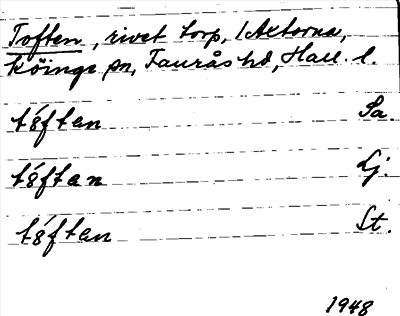 Toften, rivet torp, 1 Aetorna,
Köinge sn, Faurås hd, Hall. l.
tȣ́ftan Sa.
tȣ́ftan Lj.
tȣ́ftan St.
1948